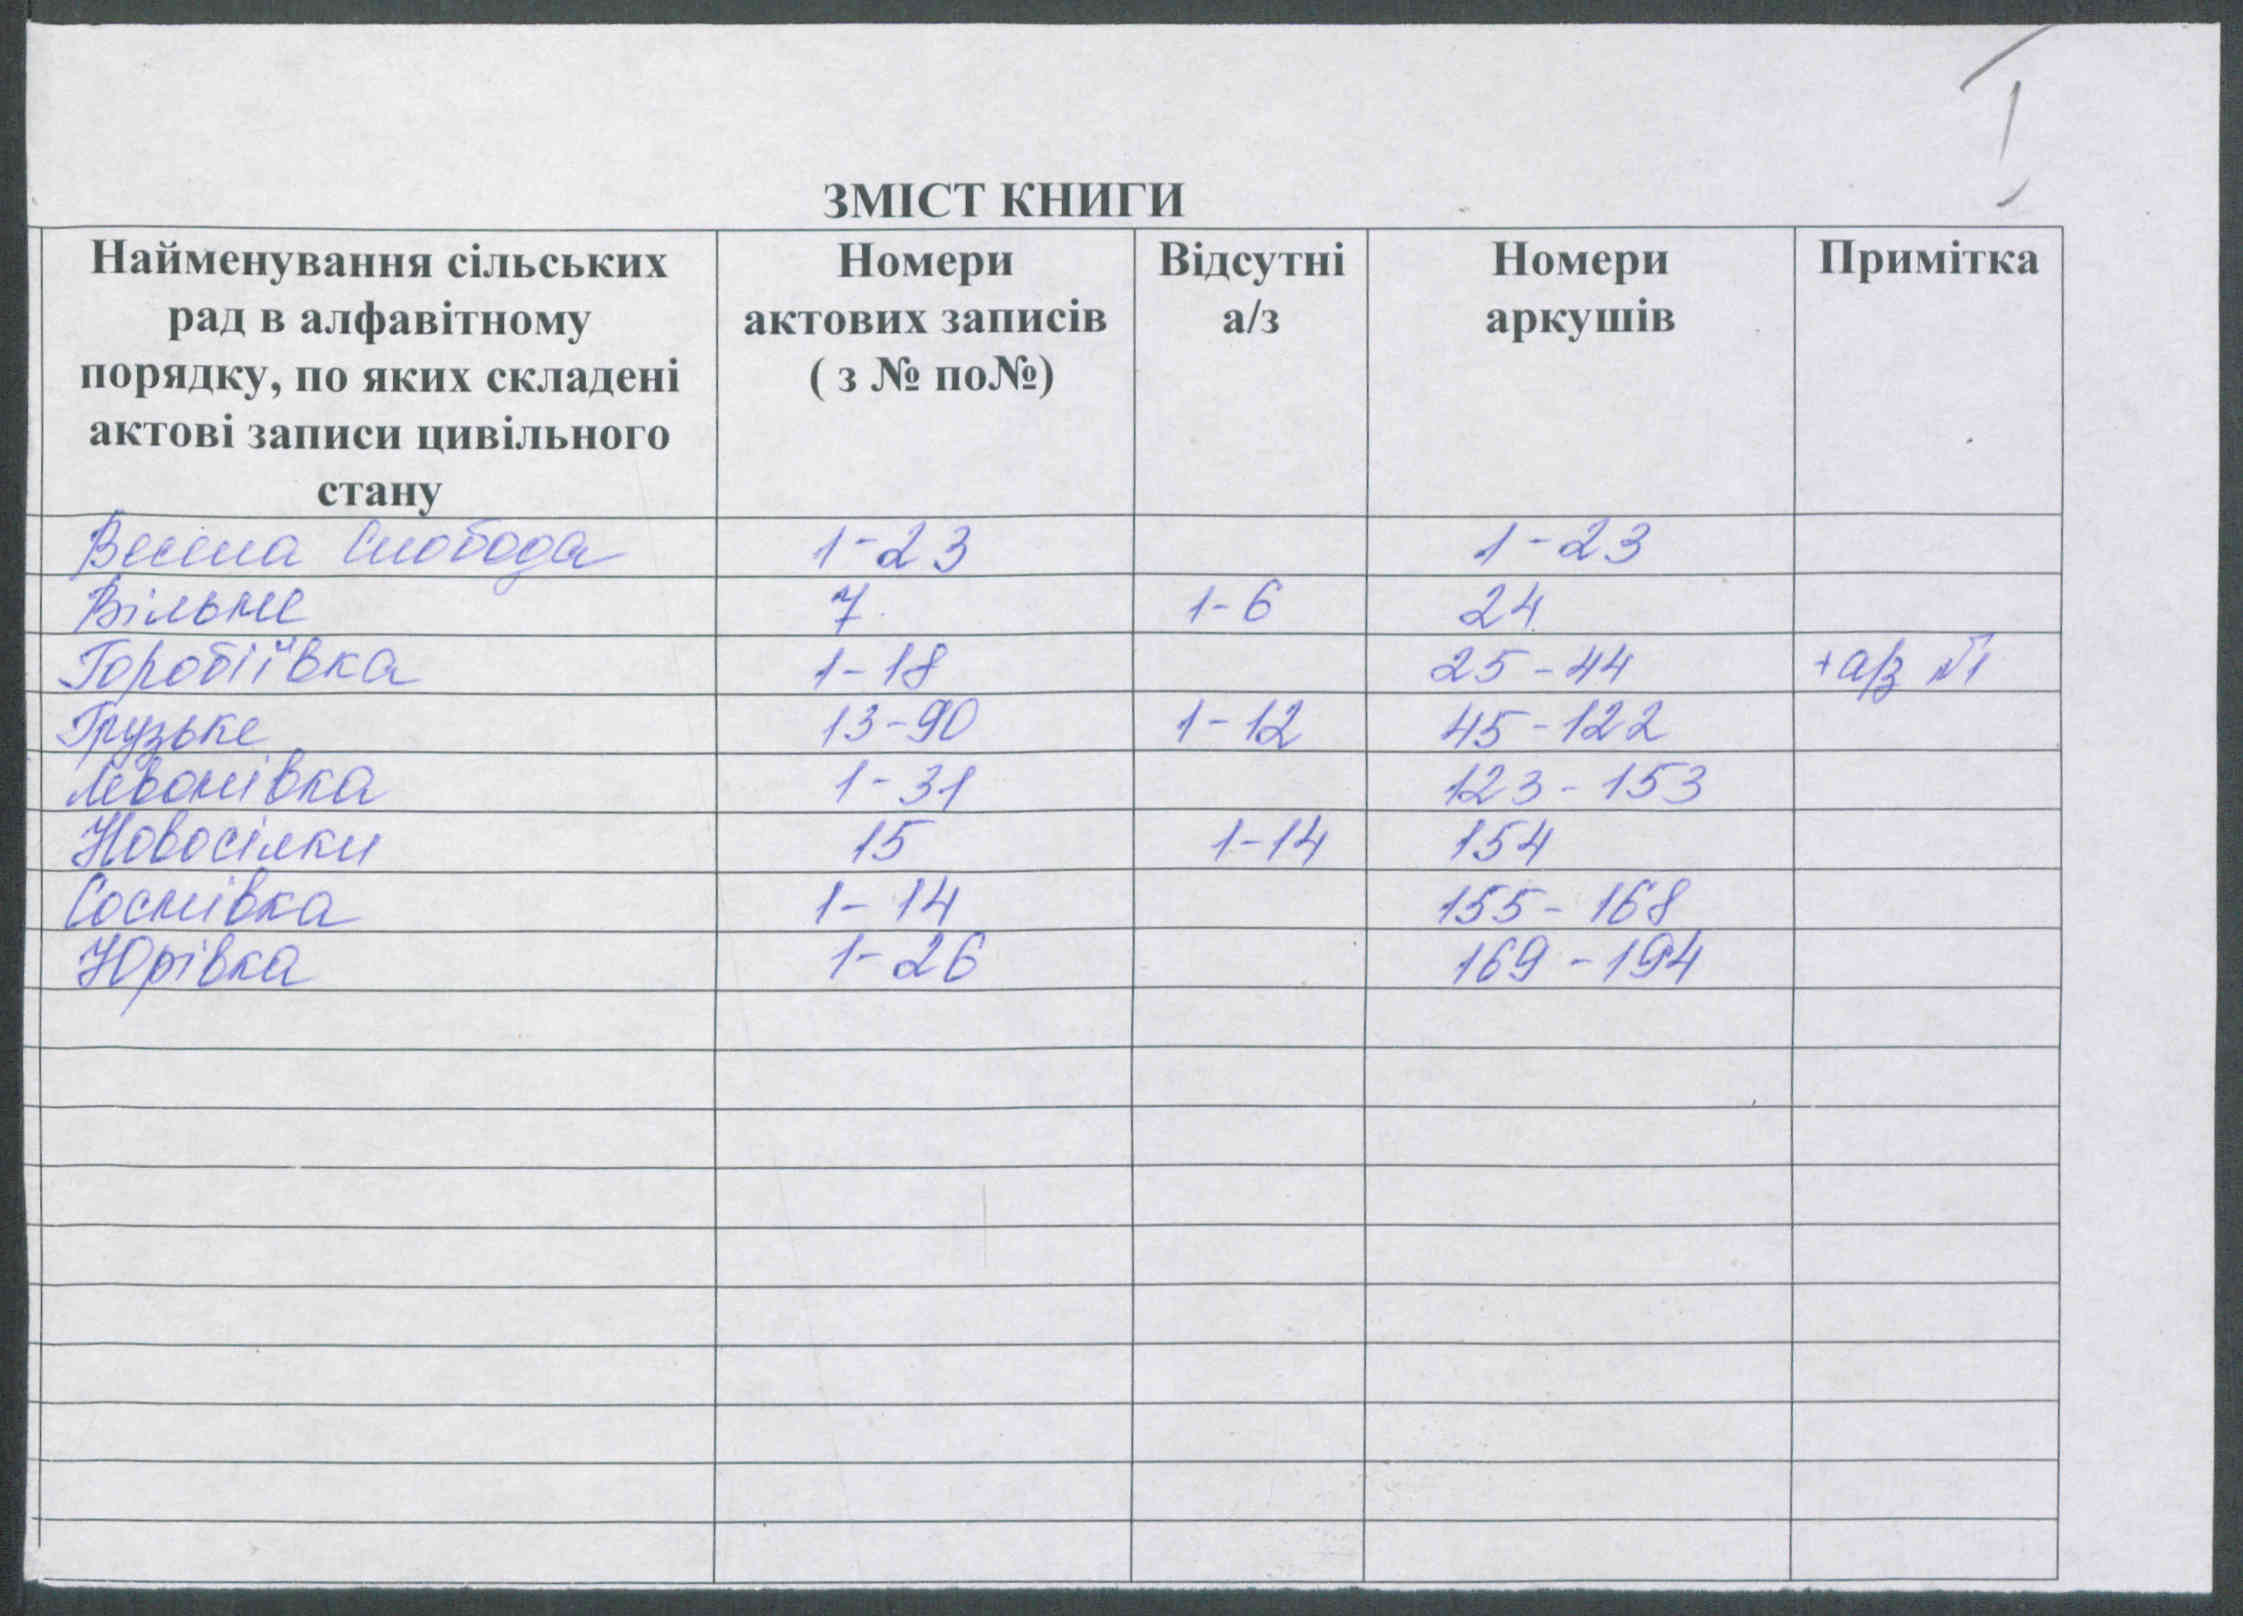 I
ЗМІСТ КНИГИ
Найменування сільських рад в алфавітному порядку, по яких складені актові записи цивільного стану | Номери актових записів ( з № по№) | Відсутні а/з | Номери аркушів | Примітка
Весела Слобода 1-23 1-23
Вільне 7 1-6 24
Горобіївка 1-18 25-44 +а/з №1
Грузьке 13-90 1-12 45-122
Леонівка 1-31 123-153
Новосілки 15 1-14 154
Соснівка 1-14 155-168
Юрівка 1-26 169-194